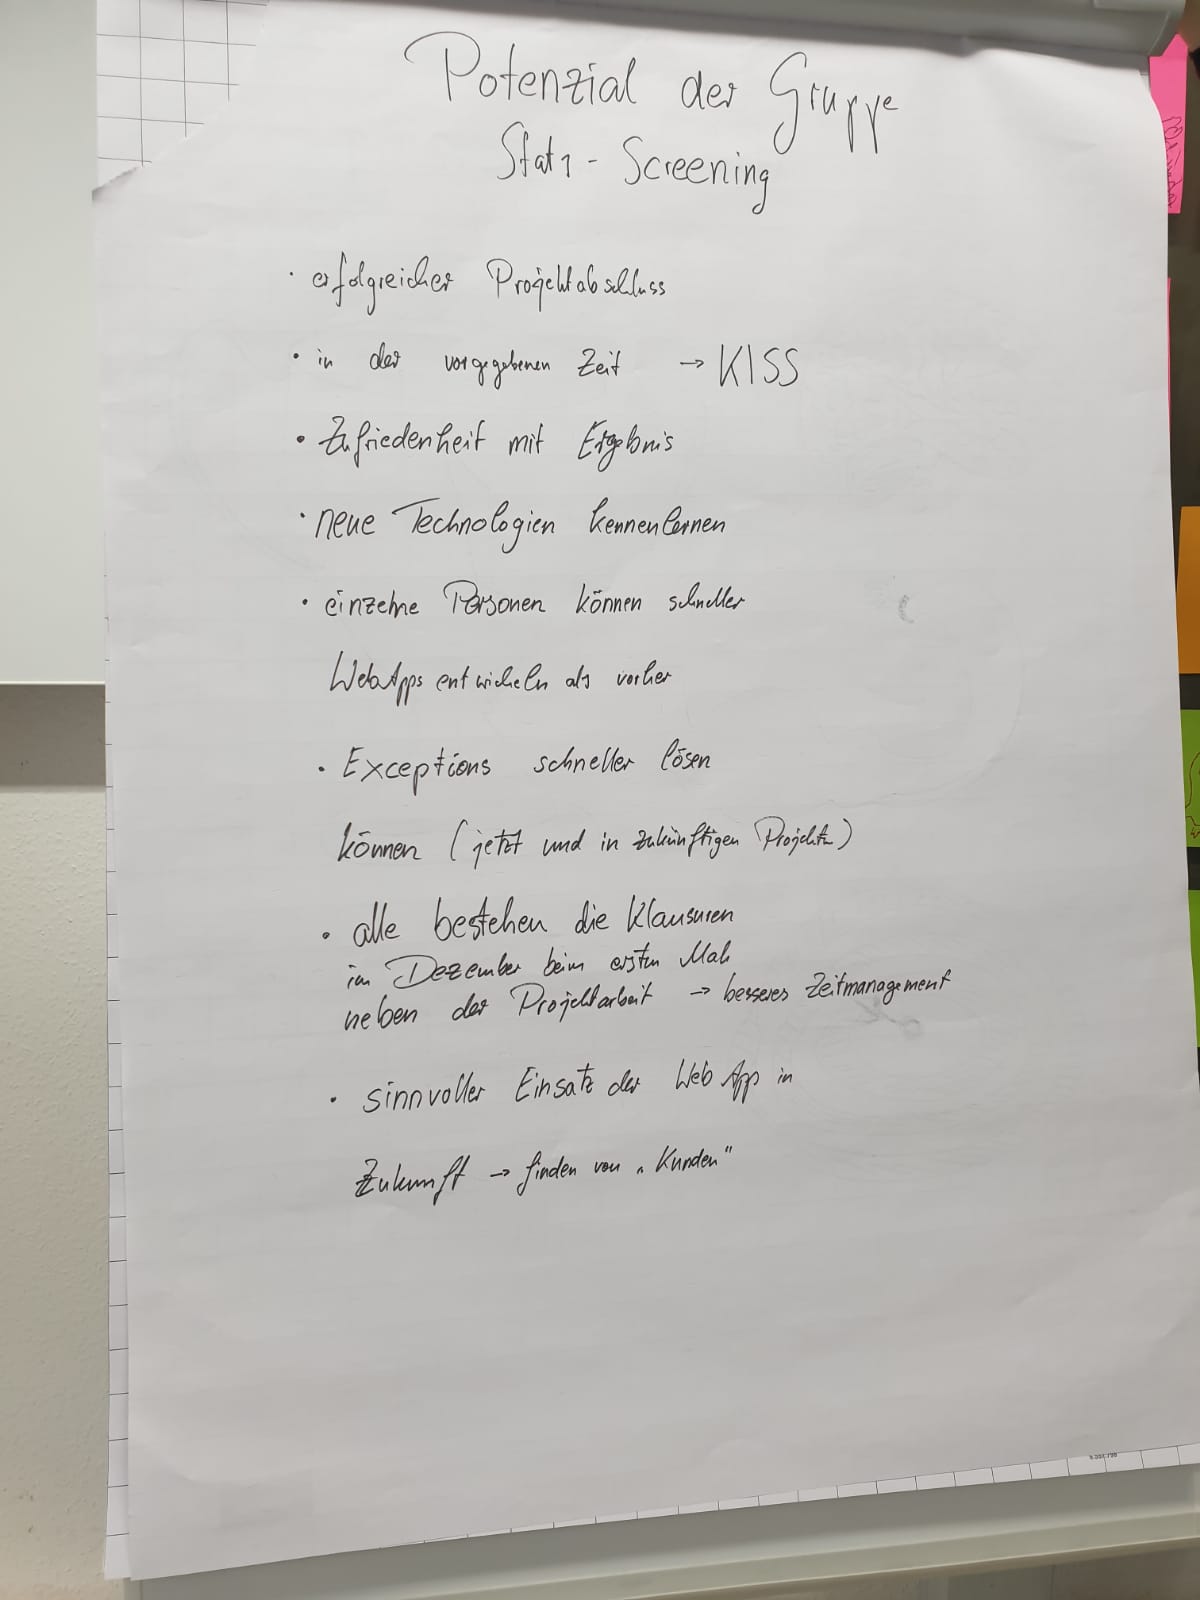 Potenzial der Gruppe
Stat1 - Screening
• erfolgreicher Projektabschluss
• in der vorgegebenen Zeit → KISS
• Zufriedenheit mit Ergebnis
• neue Technologien kennenlernen
• einzelne Personen können schneller
WebApps entwickeln als vorher
• Exceptions schneller lösen
können (jetzt und in zukünftigen Projekten)
• alle bestehen die Klausuren
im Dezember beim ersten Mal
neben der Projektarbeit → besseres Zeitmanagement
• sinnvoller Einsatz der Web App in
Zukunft → finden von „Kunden"